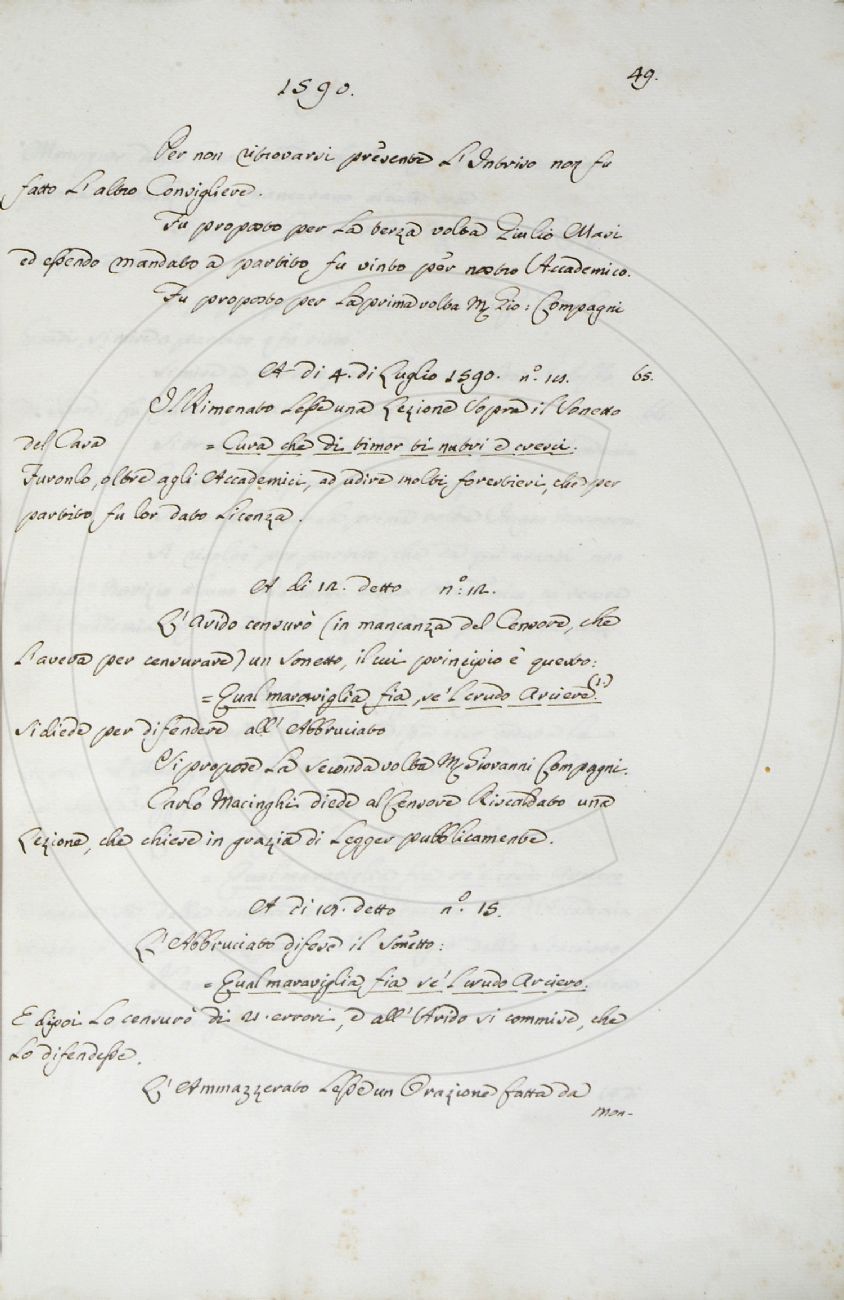 1590.
49.
Per non ritrovarsi presente L'Intriso non fu
fatto L'altro Consigliere.
Fu proposto per La terza volta Giulio Mari
ed essendo mandato a partito fu vinto per nostro Accademico.
Fu proposto per La prima volta M. Gio: Compagni
A di 4. di Luglio 1590. n.º 
65.
Il Rimenato Lesse una Lezione sopra il Sonetto
del Casa = Cura che di timor ti nutri e cresci.
Furonlo, oltre agli Accademici, ad udire molti forestieri, che per
partito fu lor dato Licenza.
A di 12. detto n.º 12.
L'Arido censurò (in mancanza del Censore, che
L'aveva per censurare) un Sonetto, il cui principio è questo:
= Qual maraviglia fia, se'l crudo Arciere. (1.)
Si diede per difendere all'Abbruciato
Si propose La seconda volta M. Giovanni Compagni.
Carlo Macinghi diede al Censore Riscaldato una
Lezione, che chiese in grazia di Legger pubblicamente.
A di detto n.º
L'Abbruciato difese il Sonetto:
= Qual maraviglia fia se'l crudo Arciero.
E dipoi Lo censurò di 21. errori, e all'Arido si commise, che
Lo difendesse.
L'Ammazzerato Lesse un Orazione fatta da
mon-